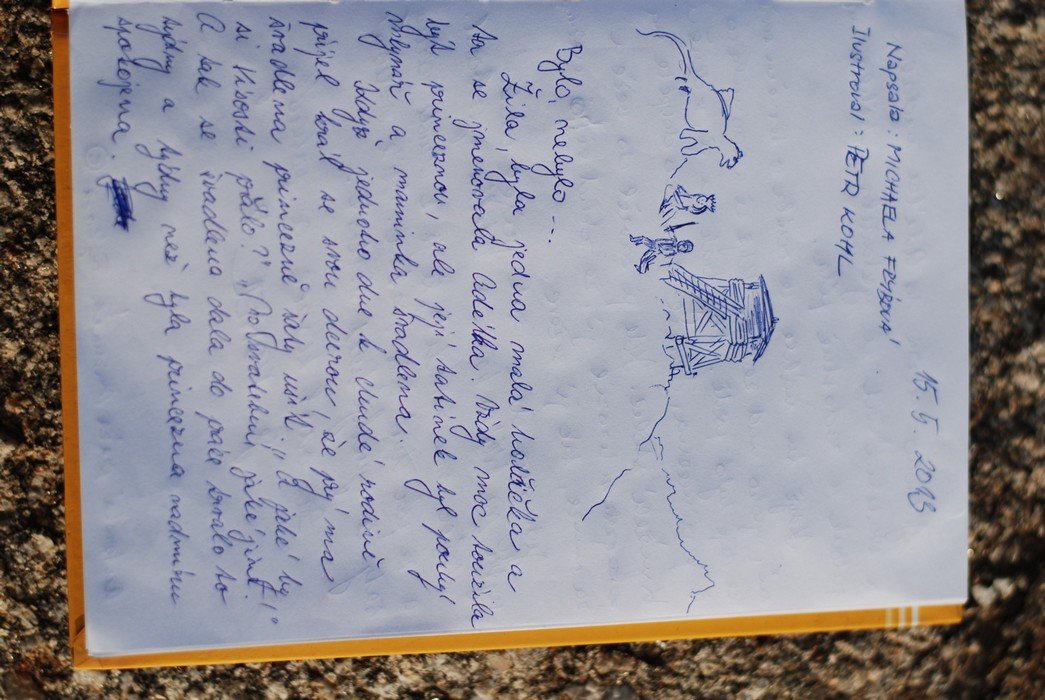 15. 5. 2013
Napsala: MICHAELA FRYBOVÁ
Ilustroval: PETR KOHL
Bylo, nebylo ...
Žila, byla jedna malá holčička a
ta se jmenovala Adélka. Vždy moc toužila
být princeznou, ale její tatínek byl pouhý
mlynář a maminka švadlena.
Když jednoho dne k chudé rodině
přijel král se svou dcerou, že prý má
švadlena princezně šaty ušít. "A jaké by
si Výsosti přálo?" "No svatební, jaké jiné!"
A tak se švadlena dala do práce trvalo to
týdny a týdny než byla princezna nadmíru
spokojena.